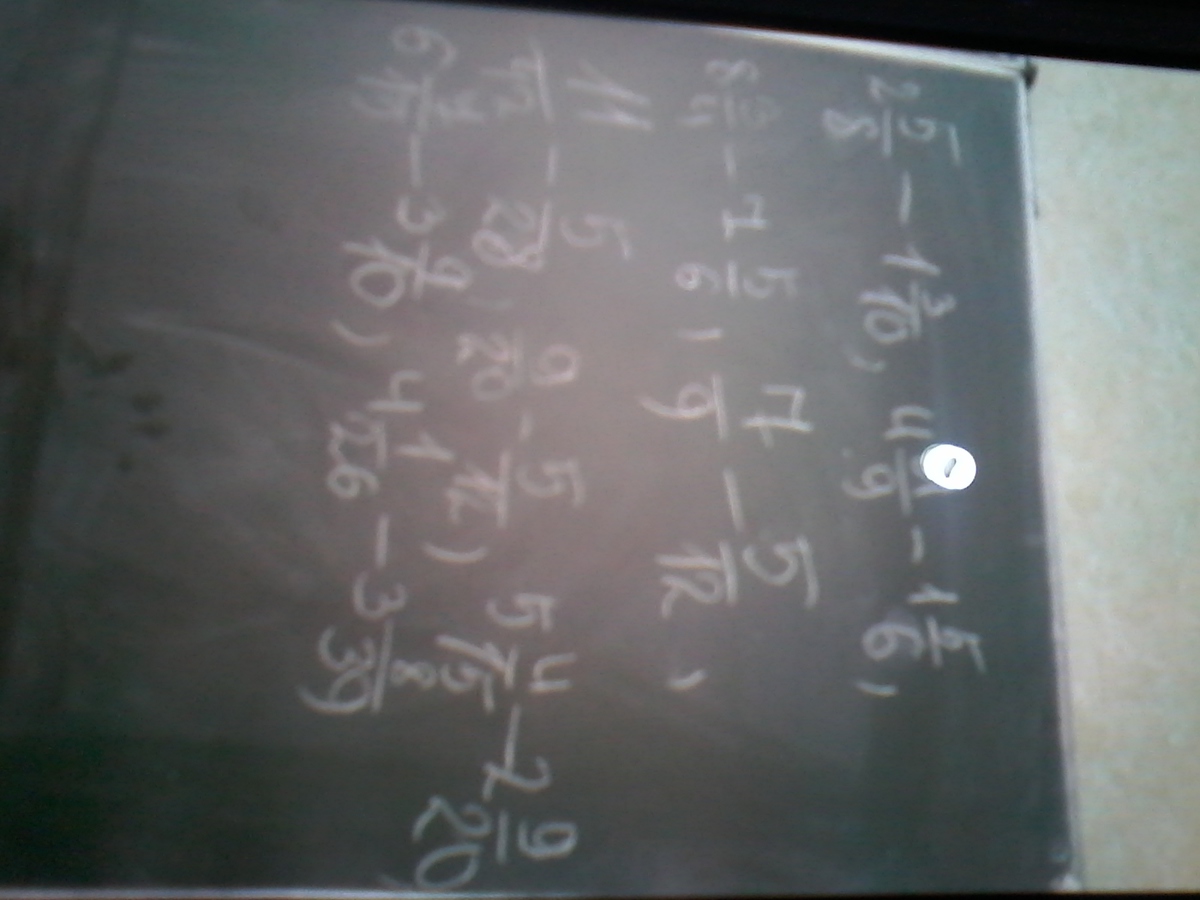 2 5/8 - 1 3/10, 4 /9 - 1 5/6,
8 3/4 - 7 5/6, 7/9 - 5/12,
11/42 - 5/28, 9/20 - 5/12, 5 4/15 - 2 9/20
6 7/15 - 3 9/10, 4 1/26 - 3 8/39